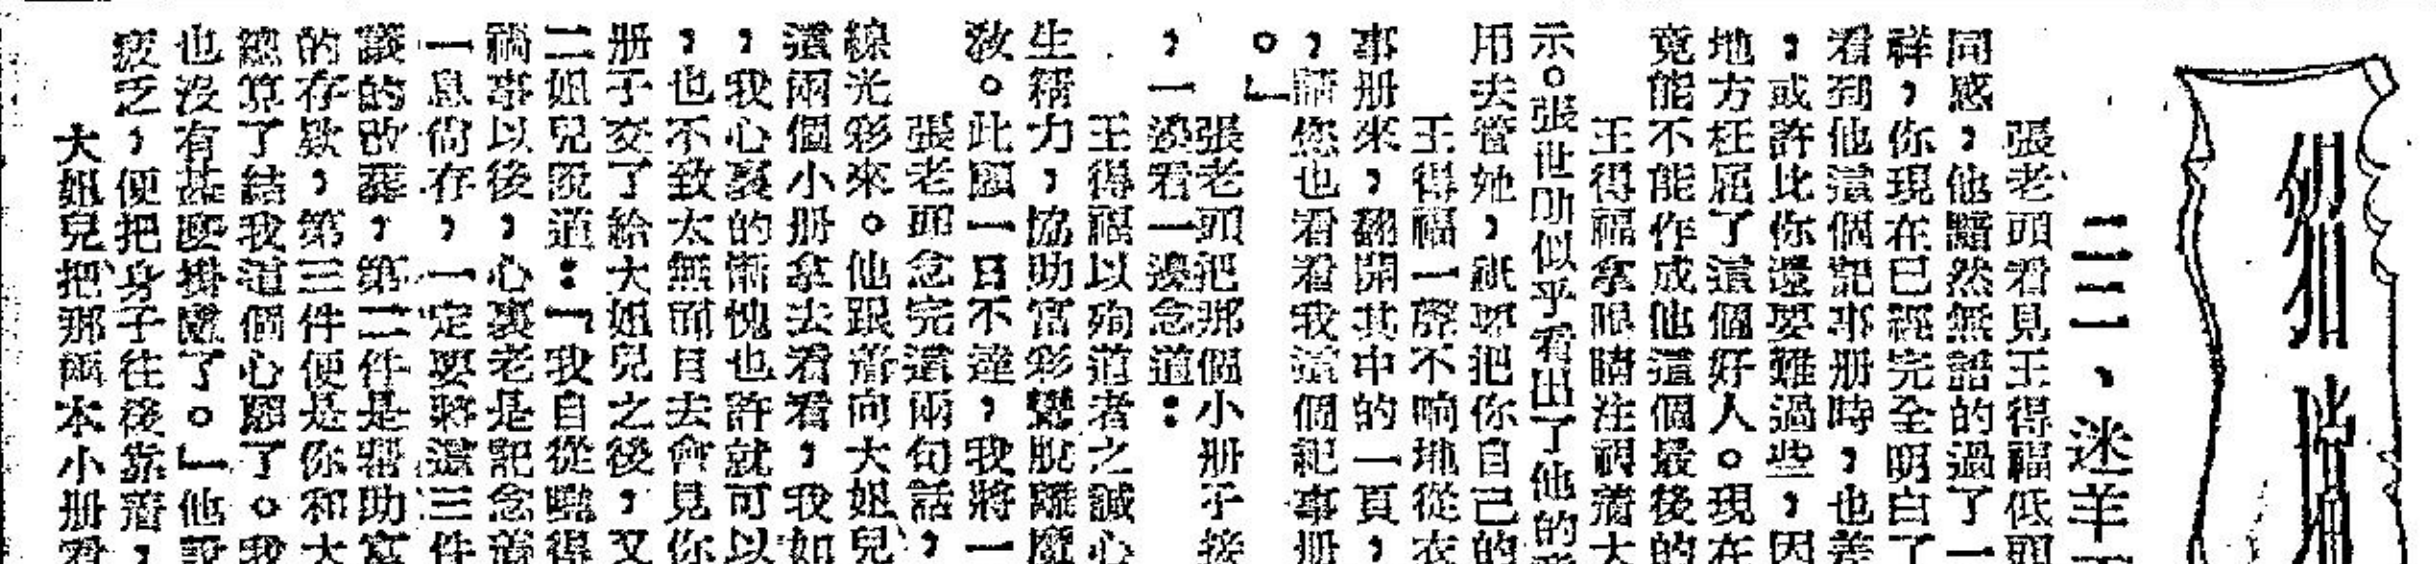 二二、迷羊
張老頭看見王得福低頭
同感，他黯然無語的過了一
祥，你現在已經完全明白了
看到他這個記事册時，也差
，或許比你還要難過些，因
地方枉屈了這個好人。現在
竟能不能作成他這個最後的
王得福拿眼睛注視着大
示。張世助似乎看出了他的
用去管她，祇要把你自己的
王得福一聲不响地從衣
事册來，翻開其中的一頁，
，請您也看看我這個記事册
。」
張老頭把那個小册子接
，一邊看一邊念道：
王得福以殉道者之誠心
生稱力，協助官彩鸞脫離魔
敎。此願一日不達，我將一
張老頭念完這兩句話，
線光彩來。他跟着向大姐兒
這兩個小册拿去看看，我如
，我心裏的慚愧也許就可以
，也不致太無面目去會見你
册子交了給大姐兒之後，又
二姐兒說道：「我自從闖得
禍事以後，心裏老是記念着
一息尙存，一定要將這三件
的改葬，第二件是帮助官
的存款，第三件便是你和大
總算了結我這個心願了。我
也沒有甚麼掛慮了。」他說
疲乏，便把身子往後靠着，
大姐兒把那兩本小册看